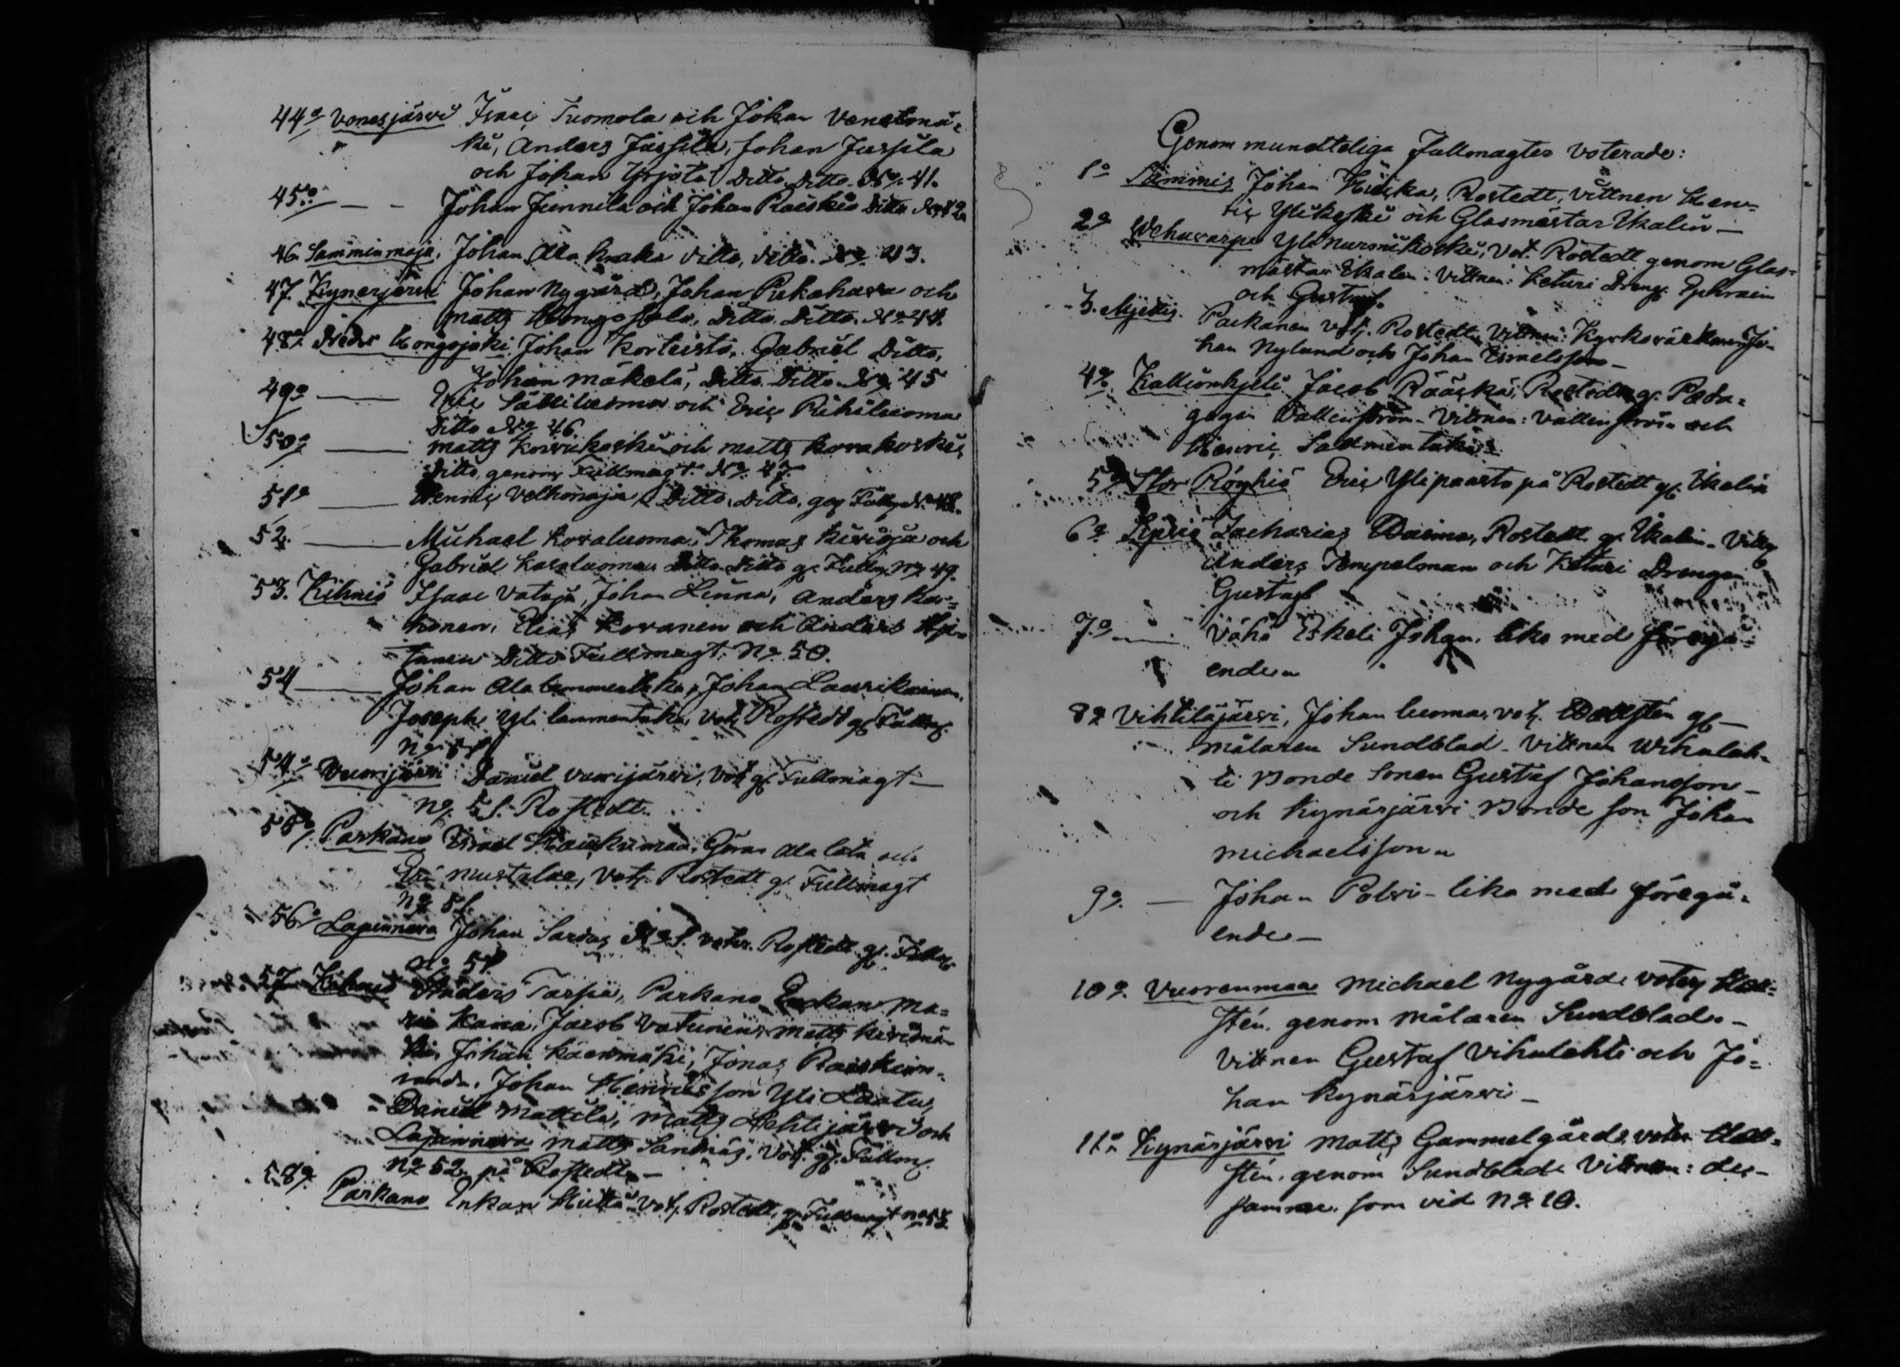 44º Vonesjärvi Isaac Tuomola och Johan Venetmä-
ki, Anders Jussila, Johan Jussila
och Johan Yrjöla Ditto Ditto Nº 41.
45º — — Johan Junnila och Johan Raiskio Ditto Nº 42
46. Samminmaja, Johan Ala knaka ditto, ditto Nº 43.
47. Kynesjärvi Johan Nygård, Johan Pukahara och
Matts Ditto, Ditto Nº 44.
48º Neder Hongojoki Johan Korteisto, Gabriel Ditto,
Johan Mäkelä, Ditto Ditto Nº 45
49º — Eric Sälliluoma och Eric Rihiluoma
Ditto Nº 46
50º — Matts Korrikoski och Matts Korakoski,
Ditto genom Fullmagt Nº 47
51º — Henric Velhomaja, Ditto, Ditto, gg Fullm Nº 48.
52. — Michael Koraluoma, Thomas och
Gabriel Koraluoma Ditto Ditto g. Fullm Nº 49.
53. Kihniö Isaac Vataja, Johan Linna, Anders Kar-
honen, Elias Kovanen och Anders
Ditto Fullmagt Nº 50.
54 — Johan Ala lammentaka, Johan Laurikainen,
Joseph Yli lammentaka Vot. Rostedt gg Fullmg.
Nº 51
54º Vuorijärvi Daniel Vuorijärvi, Vot. g. Fullmagt —
Nº 51. Rostedt.
55º Parkano Israel Kaukimaa, Göran Ala lata och
Mustalae, Vot. Rostedt g. Fullmagt
Nº 51.
56º Lapinnera Johan Sardas voter. Rostedt g. Fullmg.
Nº 51
57 Kihniö Anders Tarsia, Parkano Enkan Ma-
ria Kana, Jacob Vatunen, Matts
Johan Kaenmäki, Jonas Raiskin-
randa, Johan Henricsson Yli Laatu,
Daniel Mattila, Matts Lehtijärvi och
Lapinnera Matts Sandnäs, Vot. g. Fullmg.
Nº 52 på Rostedt —
58º Parkano Enkan Hiitta Vot. Rostedt, g. Fullmagt Nº 52.
Genom mundtteliga Fullmagter voterade:
1º Sammis Johan Kiicka, Rostedt, vittnen Hen-
ric Ylikoski och Glasmästar Ekalin —
2º Wehuvarpe Yli Nurmikoski, Vot. Rostedt genom Glas-
mästar Ekalin. Vittnen: Keturi Dreng. Ephraim
och Gustaf.
3. Myllis. Paikanen vot. Rostedt, Vittnen: Kyrkoväktaren Jo-
han Nylund och Johan Israelsson —
4º Kallionkjeli Jacob Rääskä, Rostedt g. Pæda-
gogen Wallenström. Vittnen: Vallenström och
Henric Salmentaka
5º Stor Röyhiö Eric Ylipaasto på Rostedt g. Ekalin
6º Zacharias Rostedt g. Ekalin. Vittn
Anders Tempelman och Keturi Drengen
Gustaf
7º — Väha Eskeli Johan, lika med föregå-
ende
8º Vihtiläjärvi, Johan luoma, vot. gg —
målaren Sundblad. Vittnen Wihulah-
ti Bonde Sonen Gustaf Johansson —
och Kynäsjärvi Bonde son Johan
Michaelsson
9º. — Johan Polvi — lika med föregå-
ende —
10º. Vuorenmaa Michael Nygård, voter
stén, genom målaren Sundblad —
Vittnen Gustaf Vihulahti och Jo-
han Kynäsjärvi —
11º Kynäsjärvi Matts Gammelgård, voter
stén, genom Sundblad. Vittnen: de —
samma som vid Nº 10.